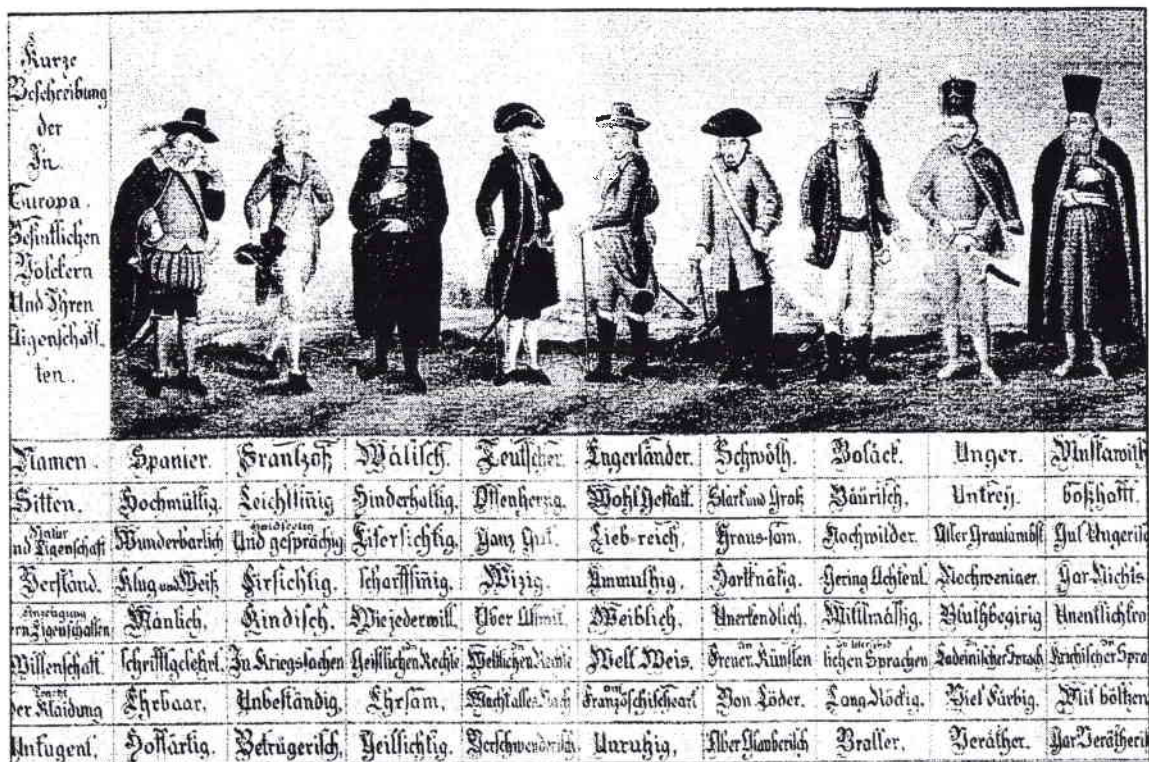 Kurze
Beschreibung
der
In
Europa.
Befintlichen
Völckern
Und Ihren
Aigenschaff
ten.
Namen. Spanier. Frantzoß Wälisch. Teutscher. Engerländer. Schwöth. Boläck. Unger. Muskawith
Sitten. Hochmüttig. Leichtsinig Hinderhaltig. Offenherzig. Wohl Gestalt. Starck und Groß Bäurisch. Untrey. boßhafft.
Natur Holdseelig
nd Eigenschaft Wunderbarlich Und gesprächig Eifersichtig. Ganz Gut. Lieb-reich. Graus-sam. Nochwilder. Aller Graulambst Gut Ungerisch
Verstand. Klug und Weiß Firsichtig. scharffsinig. Wizig. Ammuthig. Hartknäkig. Gering Achtent. Nochweniger. Gar Nichts
Anzeugung
ern Eigenschaften Mänlich. Kindisch. Wiejederwill. Uber Allmit. Weiblich. Unerkendlich. Mittlmässig. Bluthbegirig Unentlichkro
In In In In
Wissenschaft schrifftgelehrt. In Kriegssachen Geistlichen Rechte Weltlichen Rechte Welt Weis. Freuer Künsten lichen Sprachen Ladeinischer Sprach Krichischer Spra
Tracht Am
der Klaidung Ehrbaar. Unbeständig. Ehrsam. Macht alles Nach Französchischearl Von Löder. Lang Röckig. Viel Färbig. Mit böltzen
Untugent. Hoffärtig. Betrügerisch. Geilsichtig. Verschwenderisch. Unruhig. Aber Glauberisch Braller. Veräther. Gar Verätheri